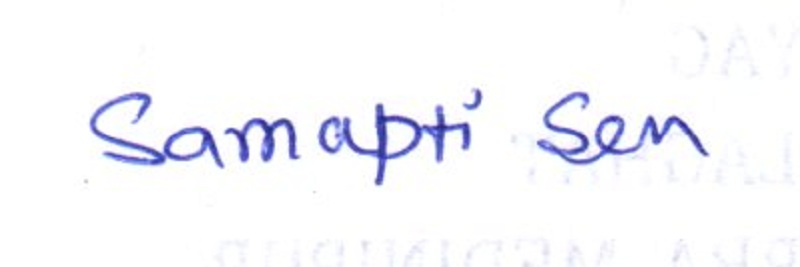 Samapti Sen